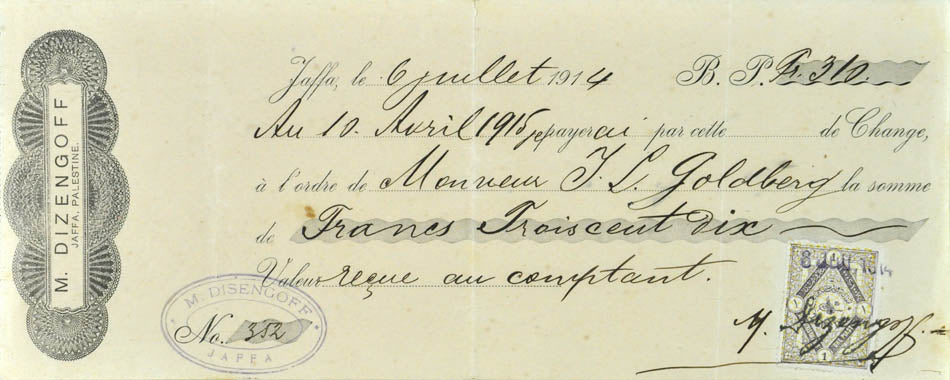 M. DIZENGOFF
JAFFA, PALESTINE.
Jaffa, le 6 juillet 1914 B. P. Fr. 310.
Au 10. Avril 1915 je payerai par cette de Change,
à l'ordre de Monsieur I. L. Goldberg la somme
de Francs Troiscent dix
Valeur reçue au comptant.
M. DISENGOFF
No. 352
JAFFA
1914
1
M. Dizengoff.